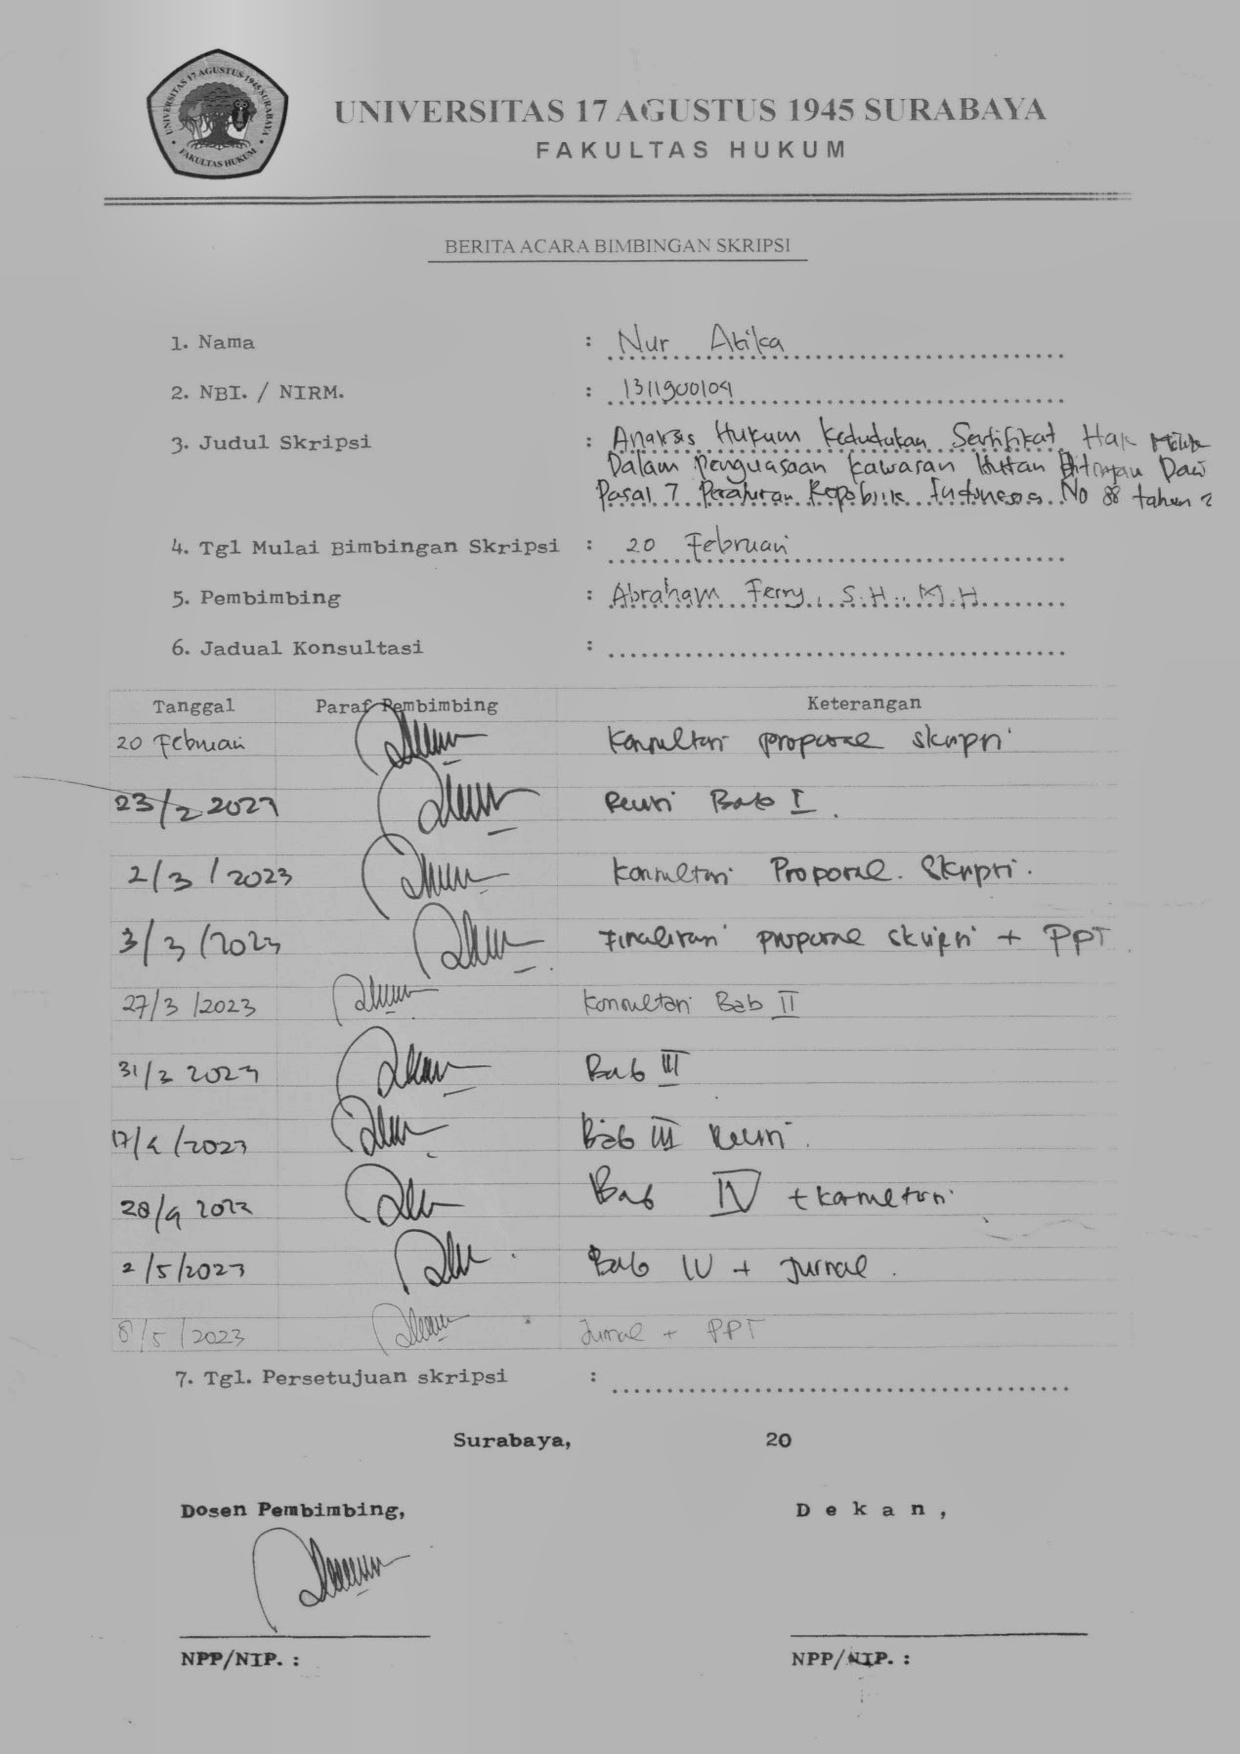 UNIVERSITAS 17 AGUSTUS 1945 SURABAYA
FAKULTAS HUKUM
UNIVERSITAS 17 AGUSTUS 1945 SURABAYA
FAKULTAS HUKUM
BERITA ACARA BIMBINGAN SKRIPSI
1. Nama : Nur Atika
2. NBI. / NIRM. : 1311900104
3. Judul Skripsi : Analisis Hukum Kedudukan Sertifikat Hak Milik
Dalam Penguasaan Kawasan Hutan Ditinjau Dari
Pasal 7 Peraturan Republik Indonesia No 88 tahun 2
4. Tgl Mulai Bimbingan Skripsi : 20 Februari
5. Pembimbing : Abraham Ferry, S.H., M.H
6. Jadual Konsultasi :
Tanggal Paraf Pembimbing Keterangan
20 Februari Konsultasi proposal skripsi
23/2 2023 Revisi Bab I.
2/3/2023 Konsultasi Proposal Skripsi.
3/3/2023 Finalisasi proposal skripsi + PPT.
27/3/2023 Konsultasi Bab II
31/3 2023 Bab III
17/4/2023 Bab III Revisi.
28/4 2023 Bab IV +
2/5/2023 Bab IV + Jurnal.
8/5/2023 Jurnal + PPT
7. Tgl. Persetujuan skripsi :
Surabaya, 20
Dosen Pembimbing, Dekan,
NPP/NIP. : NPP/NIP. :